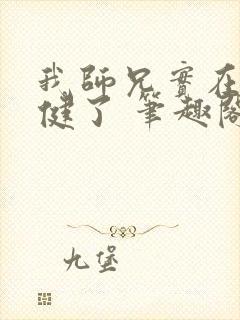 我師兄實在
健了 筆趣閣
九堡